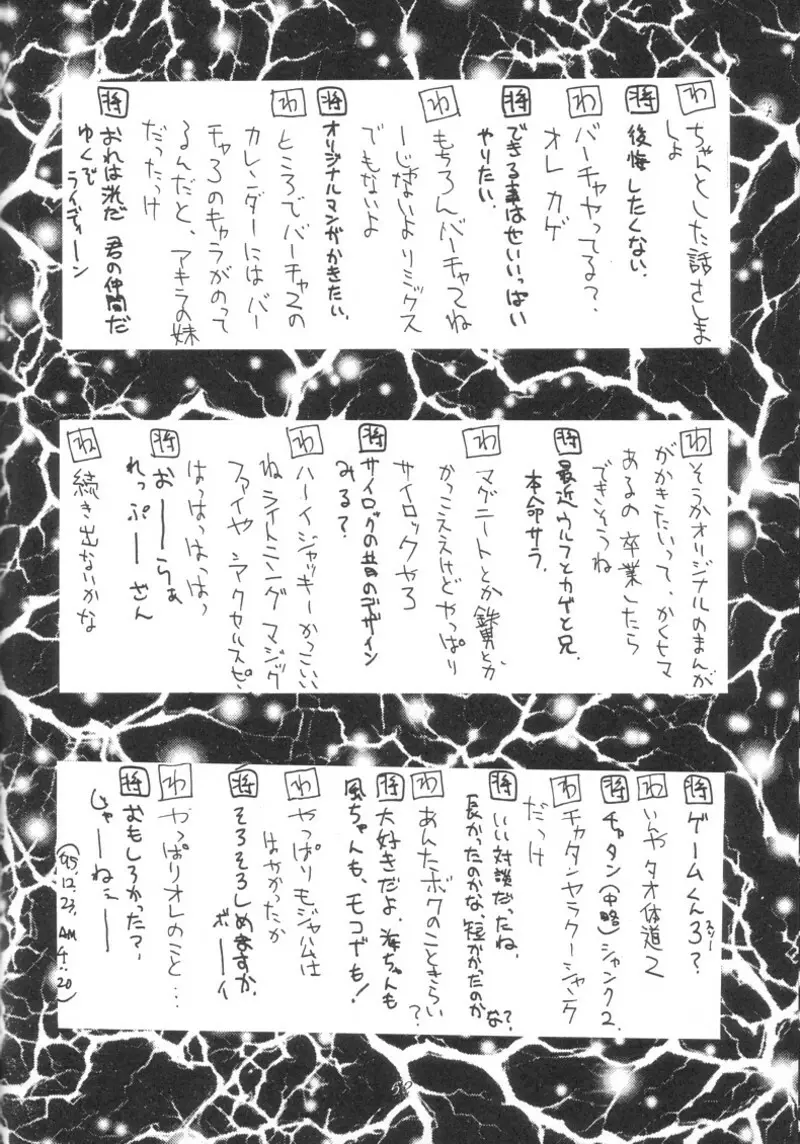 わ ちゃんとした話さしま
しょ
将 後悔したくない。
わ バーチャやってる?
オレ カゲ
将 できる事はせいいっぱい
やりたい。
わ もちろんバーチャてね
ーじゃないよリミックス
でもないよ
将 オリジナルマンガかきたい。
わ ところでバーチャ2の
カレンダーにはバー
チャ3のキャラがのって
るんだと、アキラの妹
だったっけ
将 おれは洸だ 君の仲間だ
ゆくぞ
ライディーン
わ そうかオリジナルのまんが
がかきたいって、かくヒマ
あるの 卒業したら
できそうね
将 最近ウルフとカゲと兄。
本命サラ。
わ マグニートとか鉄男とか
かっこええけどやっぱり
サイロックやろ
将 サイロックの昔のデザイン
みる?
わ ハーイジャッキーかっこいい
ね ライトニング マジック
ファイヤ シアクセルスピ、
はっはっはっはっ
将 おーーらぁ
れっぷーざん
わ 続き出ないかな
将 ゲームくん3?
わ いんや タオ体道2
将 チャタン(中略)シャンク2。
わ チャタンヤラクーシャンク
だっけ
将 いい対談だったね。
長かったのかな、短かかったのか
な?
わ あんたボクのこときらい
?
将 大好きだよ。海ちゃんも
風ちゃんも、モコナも!
わ やっぱりモジャハムは
はやかったか
将 そろそろしめますか。
ボーイ
わ やっぱりオレのこと…
将 おもしろかった?
じゃーねぇーー
('95.12.23. AM
4:20)
59